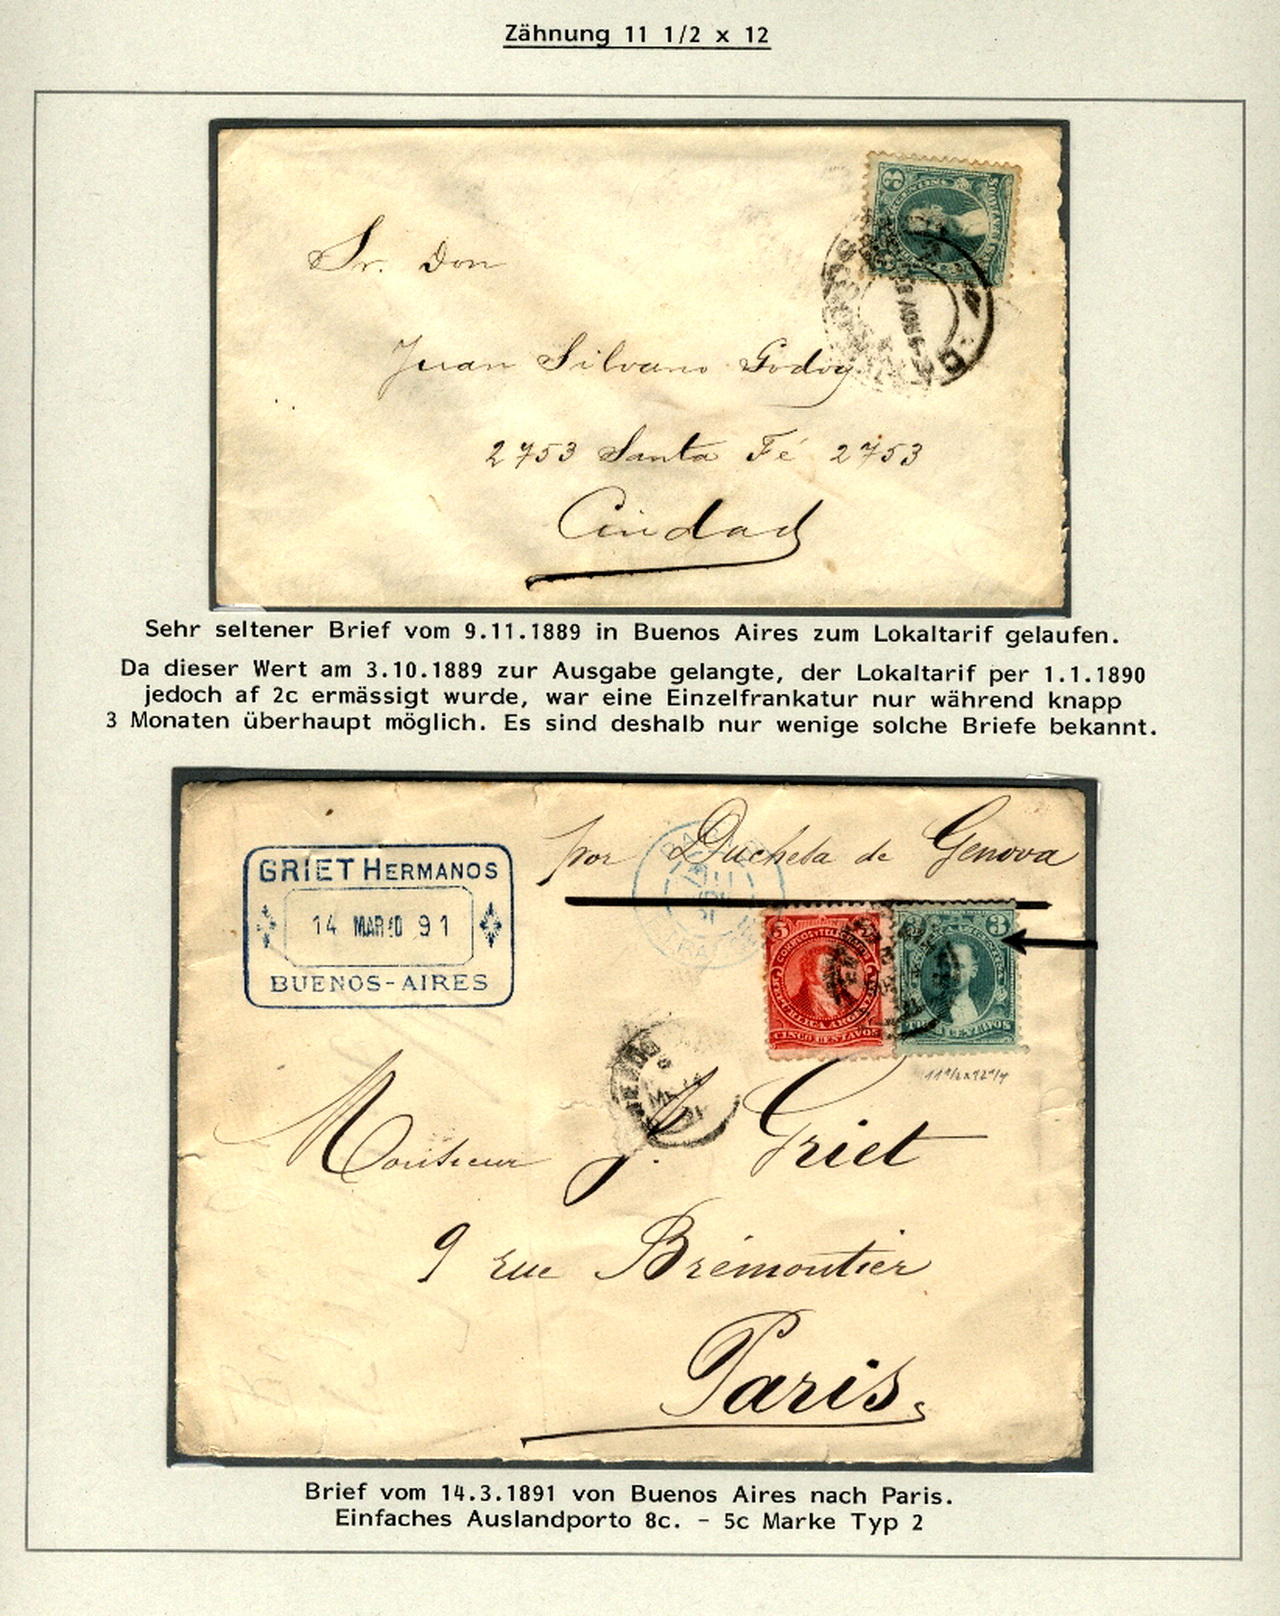 Zähnung 11 1/2 x 12
3
Sr. Don
Juan Silvano Godoy
2753 Santa Fé 2753
Ciudad
Sehr seltener Brief vom 9.11.1889 in Buenos Aires zum Lokaltarif gelaufen.
Da dieser Wert am 3.10.1889 zur Ausgabe gelangte, der Lokaltarif per 1.1.1890
jedoch af 2c ermässigt wurde, war eine Einzelfrankatur nur während knapp
3 Monaten überhaupt möglich. Es sind deshalb nur wenige solche Briefe bekannt.
por Duchesa de Genova
GRIET HERMANOS
14 MARZO 91
BUENOS-AIRES
5
CORREOS Y TELEGRAFOS
REPUBLICA ARGENTINA
CINCO CENTAVOS
3
CENTAVOS
11 1/2 x 12 1/4
Monsieur J. Griet
9 rue Brémoutier
Paris
Brief vom 14.3.1891 von Buenos Aires nach Paris.
Einfaches Auslandporto 8c. - 5c Marke Typ 2